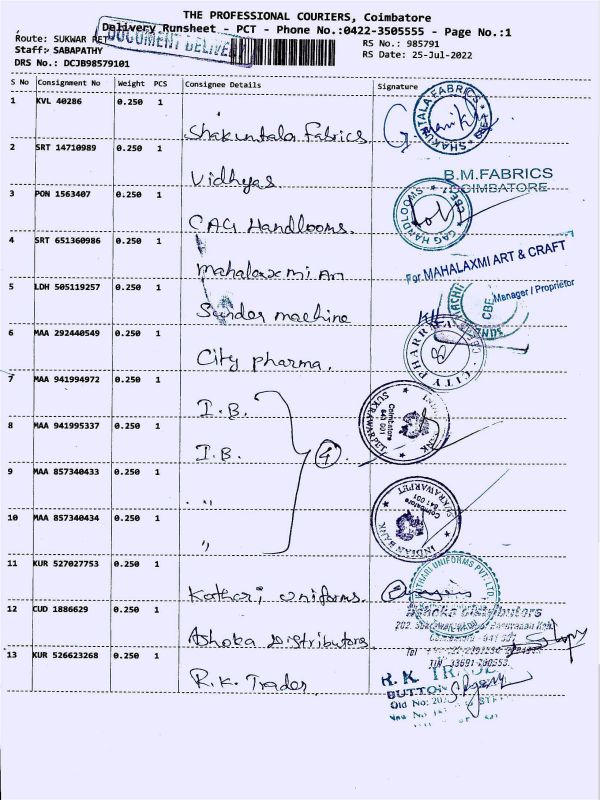 THE PROFESSIONAL COURIERS, Coimbatore
Delivery Runsheet - PCT - Phone No.:0422-3505555 - Page No.:1
Route: SUKWAR PET
DOCUMENT DELIVERY
RS No.: 985791
Staff: SABAPATHY
RS Date: 25-Jul-2022
DRS No.: DCJB98579101
S No Consignment No Weight PCS Consignee Details Signature
1 KVL 40286 0.250 1
Shakuntala Fabrics
SHAKUNTALA FABRICS
2 SRT 14710989 0.250 1
Vidhyas
B.M.FABRICS
COIMBATORE
3 PON 1563407 0.250 1
CAG Handlooms.
CAG HANDLOOMS CBE
4 SRT 651360986 0.250 1
Mahalaxmi Art
For MAHALAXMI ART & CRAFT
Manager / Proprietor
5 LDH 505119257 0.250 1
Sunder machine
CBE
6 MAA 292440549 0.250 1
City pharma.
CITY PHARMA
7 MAA 941994972 0.250 1
I.B.
SUKRAWARPET
Coimbatore
641 001
8 MAA 941995337 0.250 1
I.B.
4
9 MAA 857340433 0.250 1
"
SUKRAWARPET
Coimbatore
641 001
INDIAN BANK
10 MAA 857340434 0.250 1
"
11 KUR 527027753 0.250 1
Kothari uniforms.
KOTHARI UNIFORMS PVT. LTD.
12 CUD 1886629 0.250 1
Ashoka Distributors
Ashoka Distributors
Tel
13 KUR 526623268 0.250 1
R.K. Trader
R.K. TRADE
BUTTON
Old No: